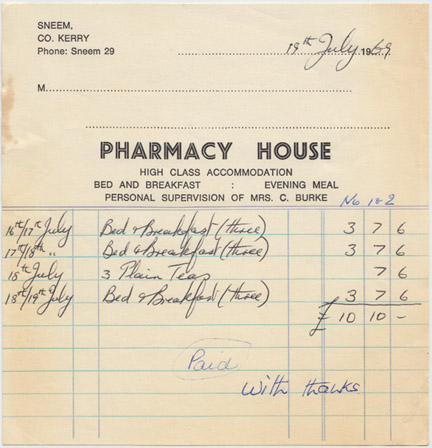 SNEEM,
CO. KERRY
Phone: Sneem 29
19th July 1969
M
PHARMACY HOUSE
HIGH CLASS ACCOMMODATION
BED AND BREAKFAST : EVENING MEAL
PERSONAL SUPERVISION OF MRS. C. BURKE
No 1 & 2
16th/17th July Bed & Breakfast (three) 3 7 6
17th/18th " Bed & Breakfast (three) 3 7 6
18th July 3 Plain Teas 7 6
18th/19th July Bed & Breakfast (three) 3 7 6
£ 10 10 -
Paid
With thanks